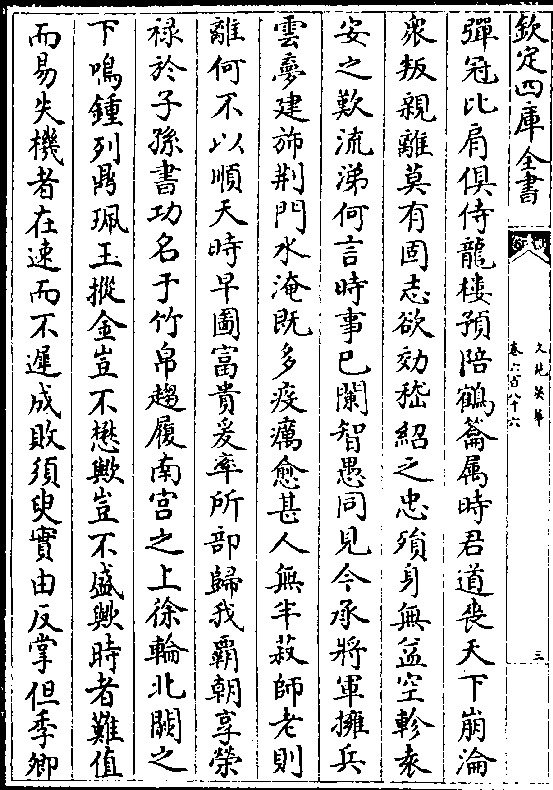 欽定四庫全書
文苑英華
卷六百八十六
三
彈冠比肩俱侍龍樓預陪鶴籥属時君道喪天下崩淪
衆叛親離莫有固志欲効嵇紹之忠殞身無益空軫袁
安之歎流涕何言時事已闌智愚同見今承將軍擁兵
雲夢建斾荆門水淹既多疫癘愈甚人無半菽師老則
離何不以順天時早圖富貴爰率所部歸我霸朝享榮
禄於子孫書功名于竹帛趨履南宫之上徐輪北闕之
下鳴鍾列鼎珮玉摐金豈不懋歟豈不盛歟時者難值
而易失機者在速而不遲成敗須臾實由反掌但季卿